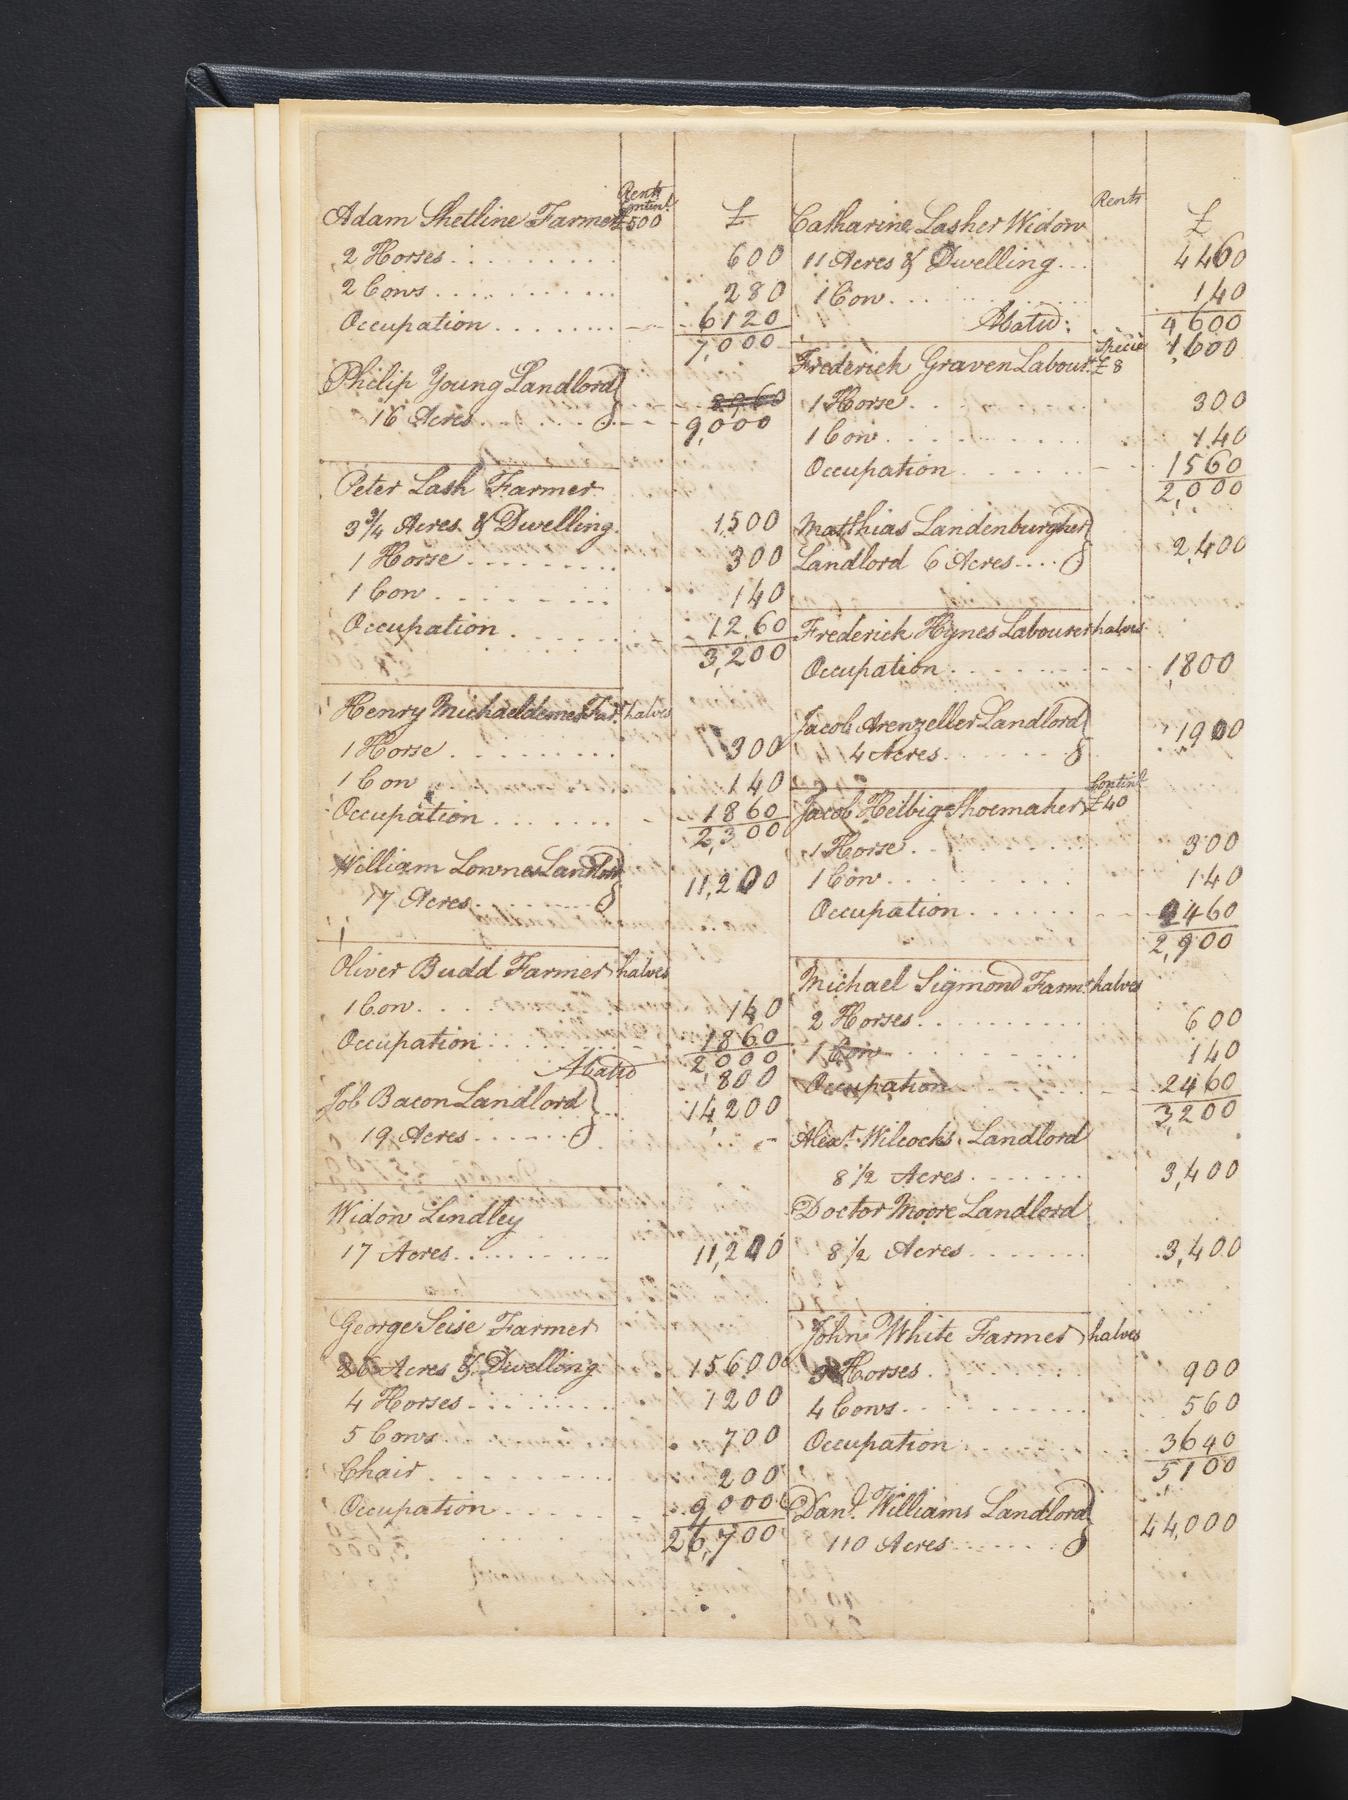 Rents
Contin.l
Adam Shetline Farmer £500 £
2 Horses 600
2 Cows 280
Occupation 6120
7,000
Philip Young Landlord
16 Acres 8960
9,000
Peter Lash Farmer
3 3/4 Acres & Dwelling 1,500
1 Horse 300
1 Cow 140
Occupation 1260
3,200
Henry Michaeldemer Far.r halves
1 Horse 300
1 Cow 140
Occupation 1860
2,300
William Lownes Landlord
17 Acres 11,200
Oliver Budd Farmer halves
1 Cow 140
Occupation 1860
2,000
Abated 800
Job Bacon Landlord 14,200
19 Acres
Widow Lindley
17 Acres 11,200
George Seise Farmer
26 Acres & Dwelling 15600
4 Horses 1200
5 Cows 700
Chair 200
Occupation 9000
26,700
Rents
Catharine Lasher Widow £
11 Acres & Dwelling 4460
1 Cow 140
4,600
Abated: 1,600
Specie
Frederick Graven Labour.r £8
1 Horse 300
1 Cow 140
Occupation 1560
2,000
Matthias Landenburgher
Landlord 6 Acres 2,400
Frederick Hynes Labourer halves
Occupation 1,800
Jacob Arenzeller Landlord
4 Acres 1,900
Contin.l
Jacob Helbig Shoemaker £40
1 Horse 300
1 Cow 140
Occupation 2460
2,900
Michael Sigmond Farm.r halves
2 Horses 600
1 Cow 140
Occupation 2460
3,200
Alex.r Wilcocks Landlord
8 1/2 Acres 3,400
Doctor Moore Landlord
8 1/2 Acres 3,400
John White Farmer halves
3 Horses 900
4 Cows 560
Occupation 3640
5,100
Dan.l Williams Landlord
110 Acres 44,000